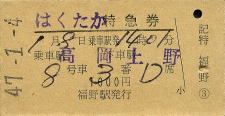 はくたか 特急券
1月8日 乗車駅発 14時01分
乗車駅 高岡 上野
8号車 3番 D席
福野駅発行
47-1-4
記特 福野 ③
小